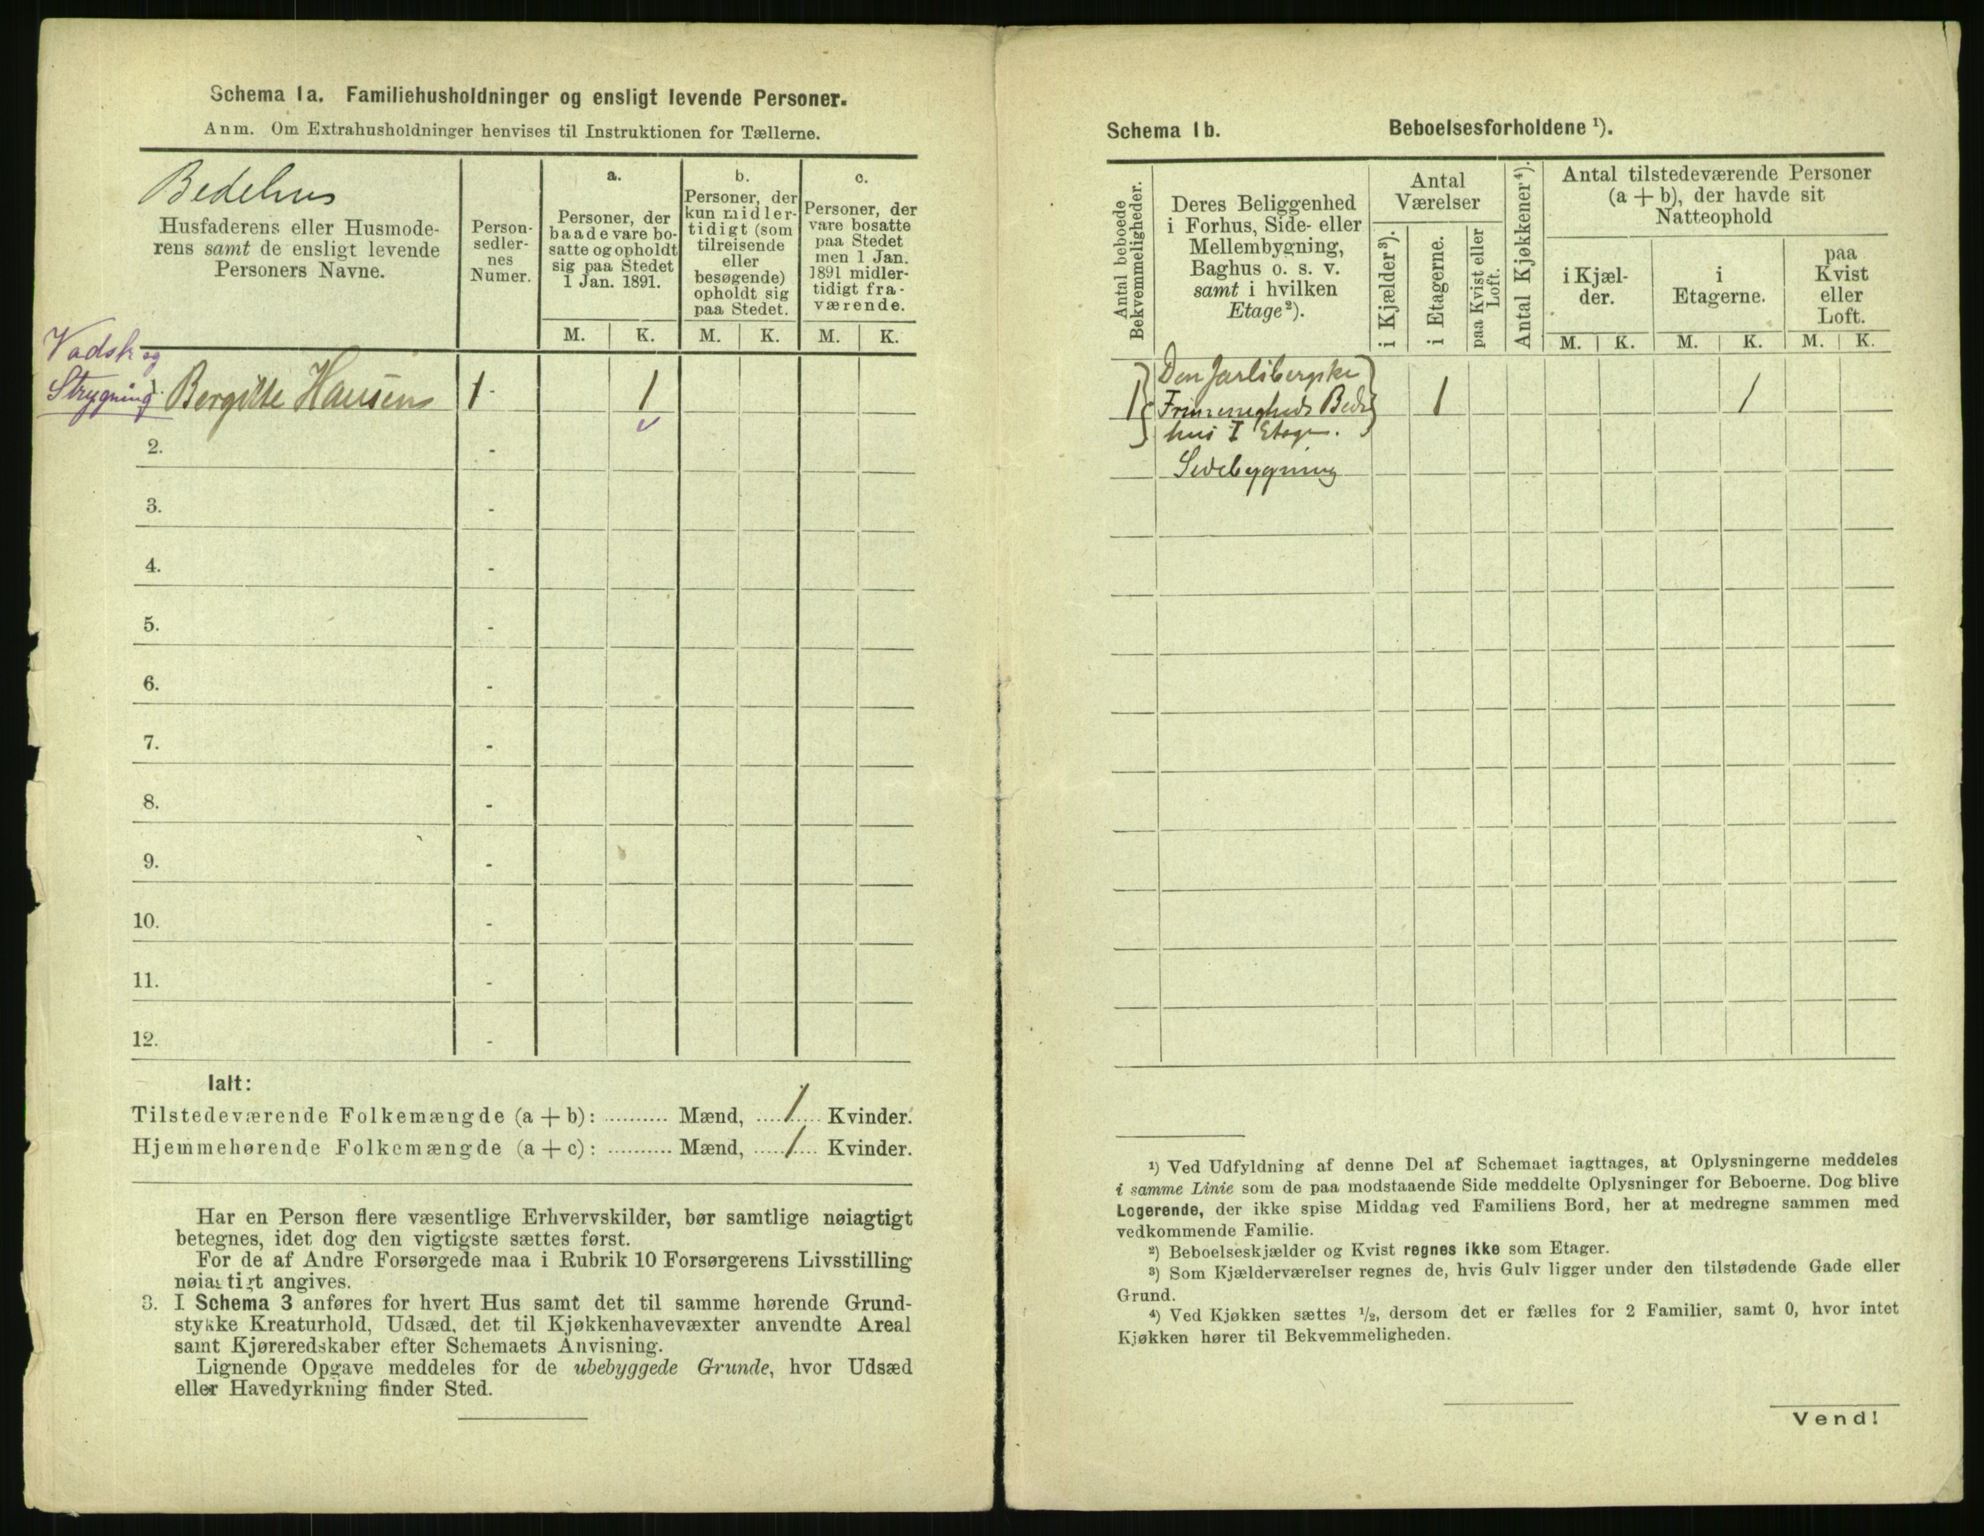 Schema 1a. Familiehusholdninger og ensligt levende Personer.
Anm. Om Extrahusholdninger henvises til Instruktionen for Tællerne.
Bedehus
Husfaderens eller Husmode-
rens samt de ensligt levende
Personers Navne.
Person-
sedler-
nes
Numer.
a.
Personer, der
baade vare bo-
satte og opholdt
sig paa Stedet
1 Jan. 1891.
b.
Personer, der
kun midler-
tidigt (som
tilreisende
eller
besøgende)
opholdt sig
paa Stedet.
c.
Personer, der
vare bosatte
paa Stedet
men 1 Jan.
1891 midler-
tidigt fra-
værende.
M. K. M. K. M. K.
Vadsk og
Strygning
Bergitte Hansen 1 - 1
2. -
3. -
4. -
5. -
6. -
7. -
8. -
9. -
10. -
11. -
12. -
Ialt:
Tilstedeværende Folkemængde (a + b): .......... Mænd, .....1..... Kvinder.
Hjemmehørende Folkemængde (a + c): .......... Mænd, .....1..... Kvinder.
Har en Person flere væsentlige Erhvervskilder, bør samtlige nøiagtigt
betegnes, idet dog den vigtigste sættes først.
For de af Andre Forsørgede maa i Rubrik 10 Forsørgerens Livsstilling
nøiagtigt angives.
3. I Schema 3 anføres for hvert Hus samt det til samme hørende Grund-
stykke Kreaturhold, Udsæd, det til Kjøkkenhavevæxter anvendte Areal
samt Kjøreredskaber efter Schemaets Anvisning.
Lignende Opgave meddeles for de ubebyggede Grunde, hvor Udsæd
eller Havedyrkning finder Sted.
Schema 1b. Beboelsesforholdene ¹).
Antal beboede
Bekvemmeligheder.
Deres Beliggenhed
i Forhus, Side- eller
Mellembygning,
Baghus o. s. v.
samt i hvilken
Etage²).
Antal
Værelser
i Kjælder³).
i Etagerne.
paa Kvist eller
Loft.
Antal Kjøkkener⁴).
Antal tilstedeværende Personer
(a + b), der havde sit
Natteophold
i Kjæl-
der.
i
Etagerne.
paa
Kvist
eller
Loft.
M. K. M. K. M. K.
Den Jarlsbergske
1 Frimenigheds Bede 1 1
hus I Etage.
Sidebygning
¹) Ved Udfyldning af denne Del af Schemaet iagttages, at Oplysningerne meddeles
i samme Linie som de paa modstaaende Side meddelte Oplysninger for Beboerne. Dog blive
Logerende, der ikke spise Middag ved Familiens Bord, her at medregne sammen med
vedkommende Familie.
²) Beboelseskjælder og Kvist regnes ikke som Etager.
³) Som Kjælderværelser regnes de, hvis Gulv ligger under den tilstødende Gade eller
Grund.
⁴) Ved Kjøkken sættes ½, dersom det er fælles for 2 Familier, samt 0, hvor intet
Kjøkken hører til Bekvemmeligheden.
Vend!